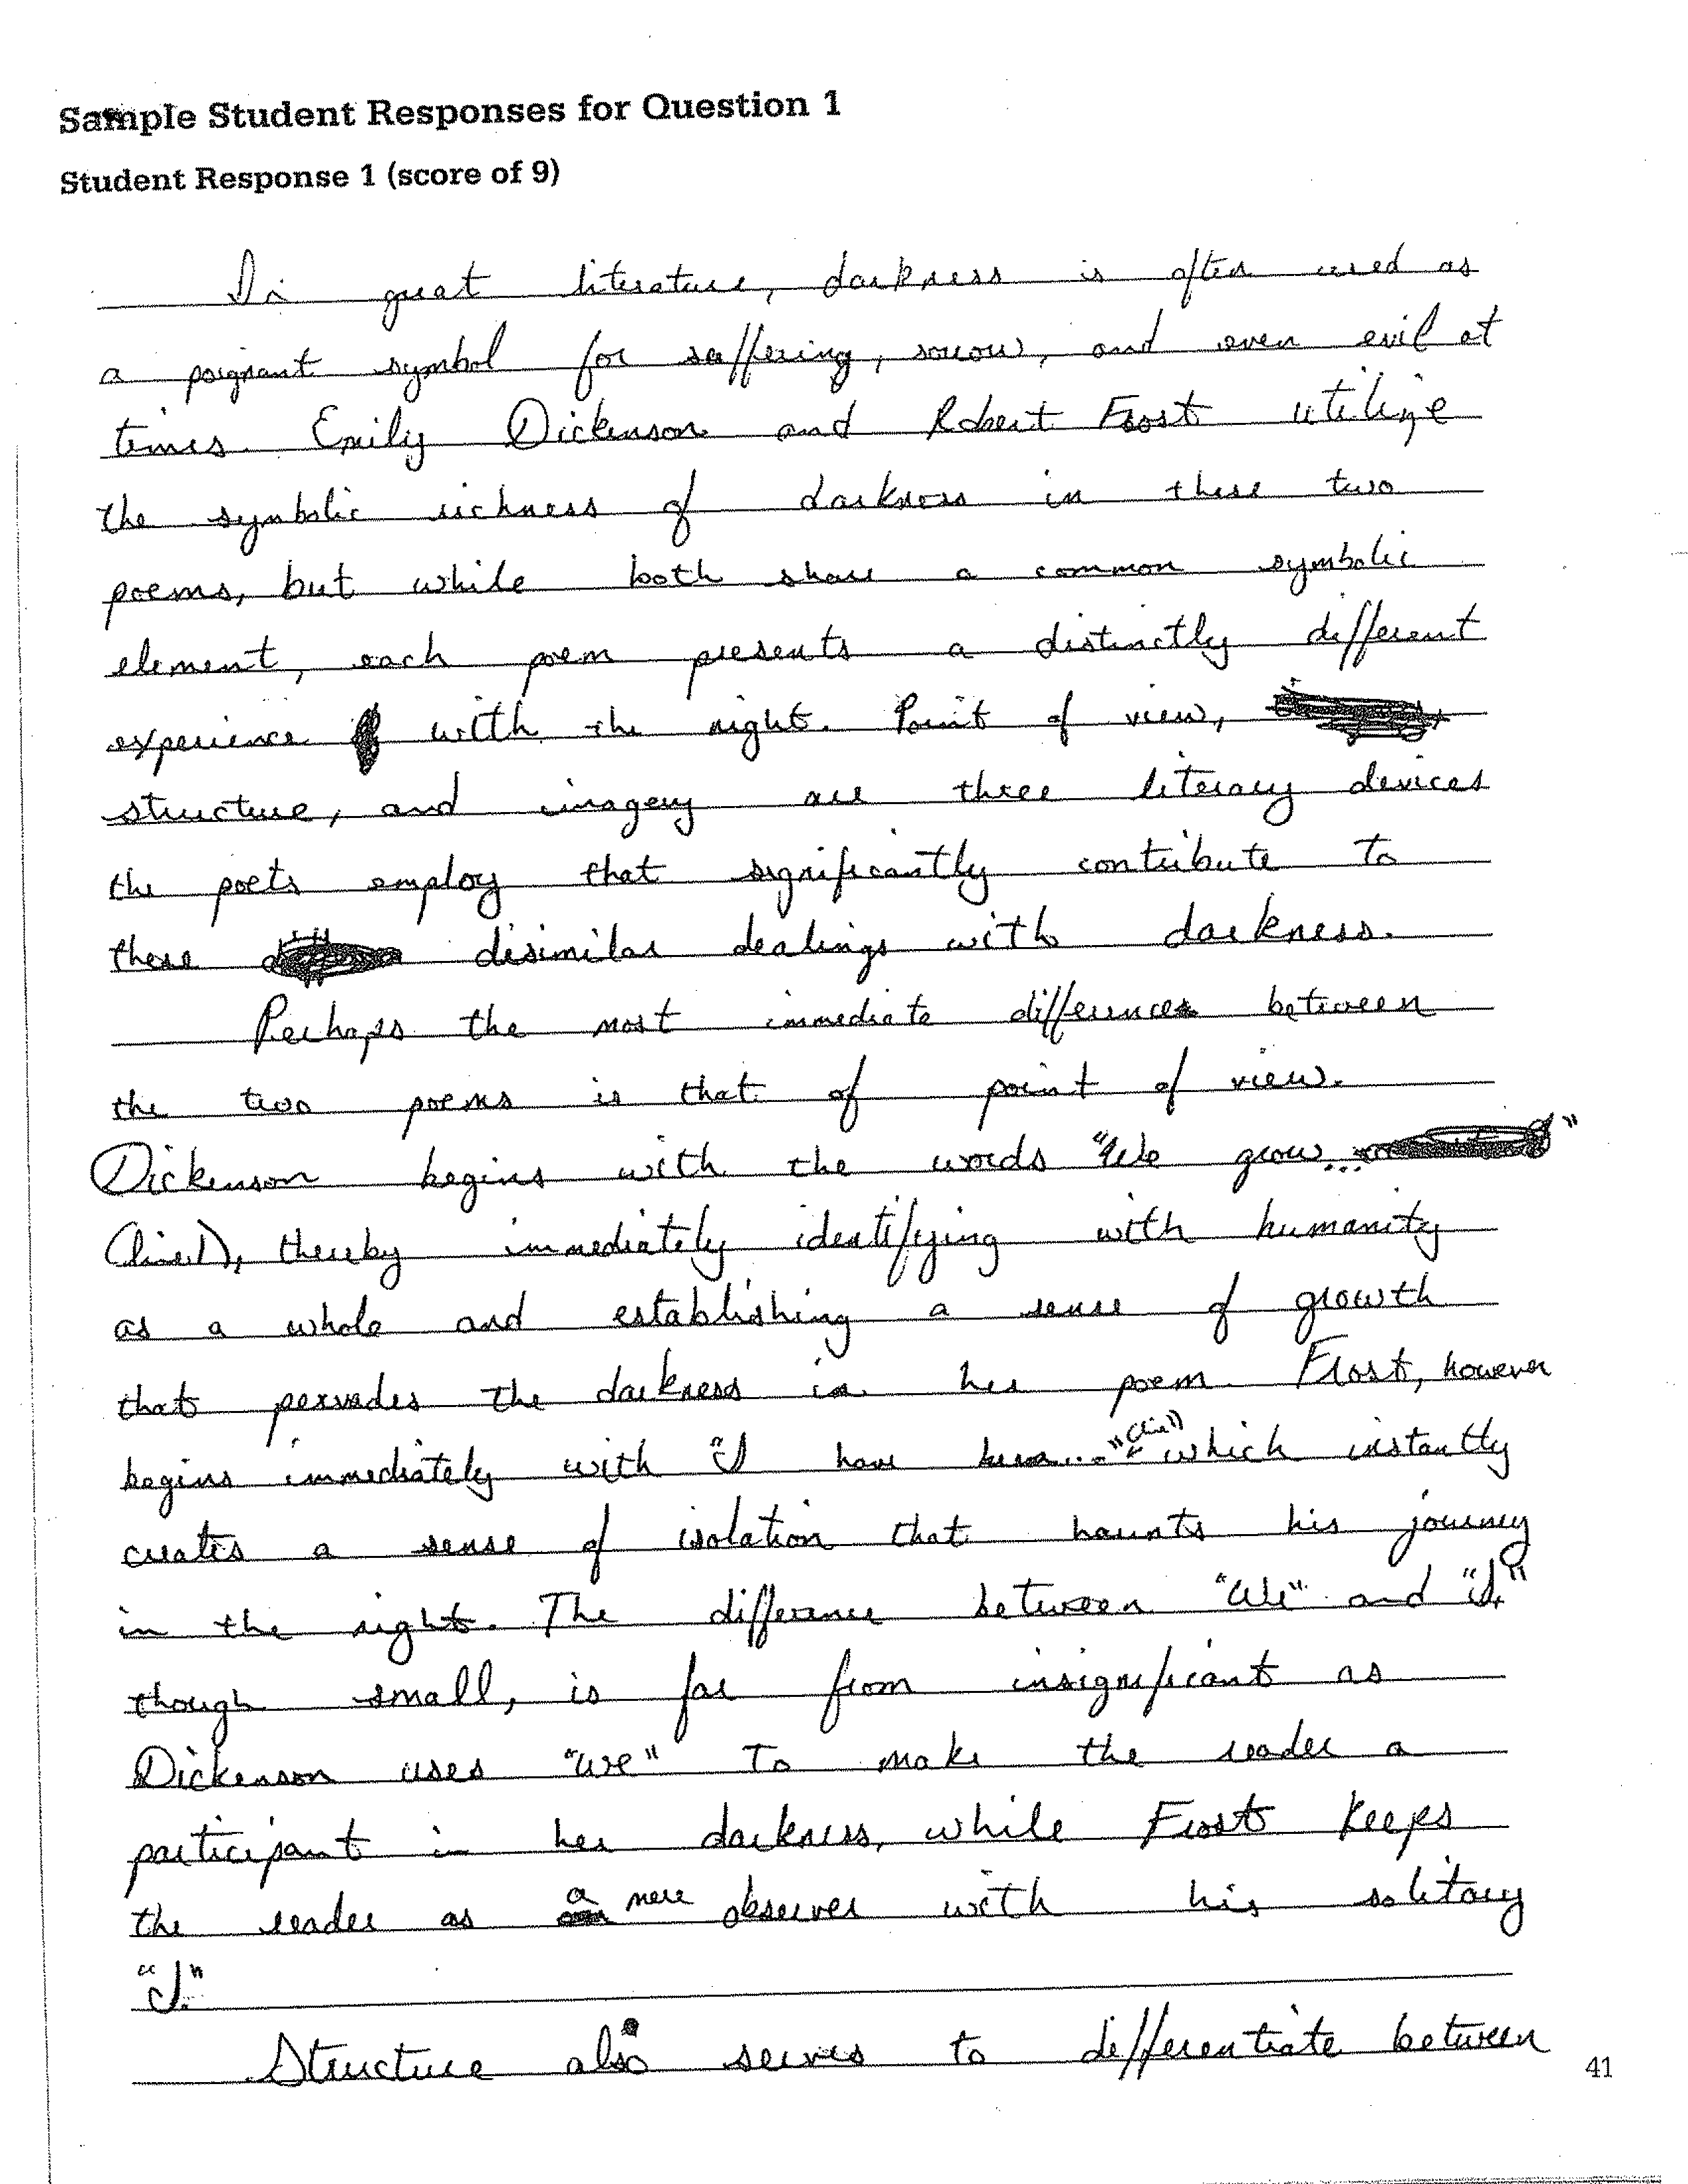 Sample Student Responses for Question 1
Student Response 1 (score of 9)
In great literature, darkness is often used as
a poignant symbol for suffering, sorrow, and even evil at
times. Emily Dickenson and Robert Frost utilize
the symbolic richness of darkness in these two
poems, but while both share a common symbolic
element, each poem presents a distinctly different
experience with the night. Point of view,
structure, and imagery are three literary devices
the poets employ that significantly contribute to
these disimilar dealings with darkness.
Perhaps the most immediate difference between
the two poems is that of point of view.
Dickenson begins with the words "We grow..."
(line 1), thereby immediately identifying with humanity
as a whole and establishing a sense of growth
that pervades the darkness in her poem. Frost, however
begins immediately with "I have been..." (line 1) which instantly
creates a sense of isolation that haunts his journey
in the night. The difference between "We" and "I,"
though small, is far from insignificant as
Dickenson uses "we" to make the reader a
participant in her darkness, while Frost keeps
the reader as a mere observer with his solitary
"I."
Structure also serves to differentiate between
41